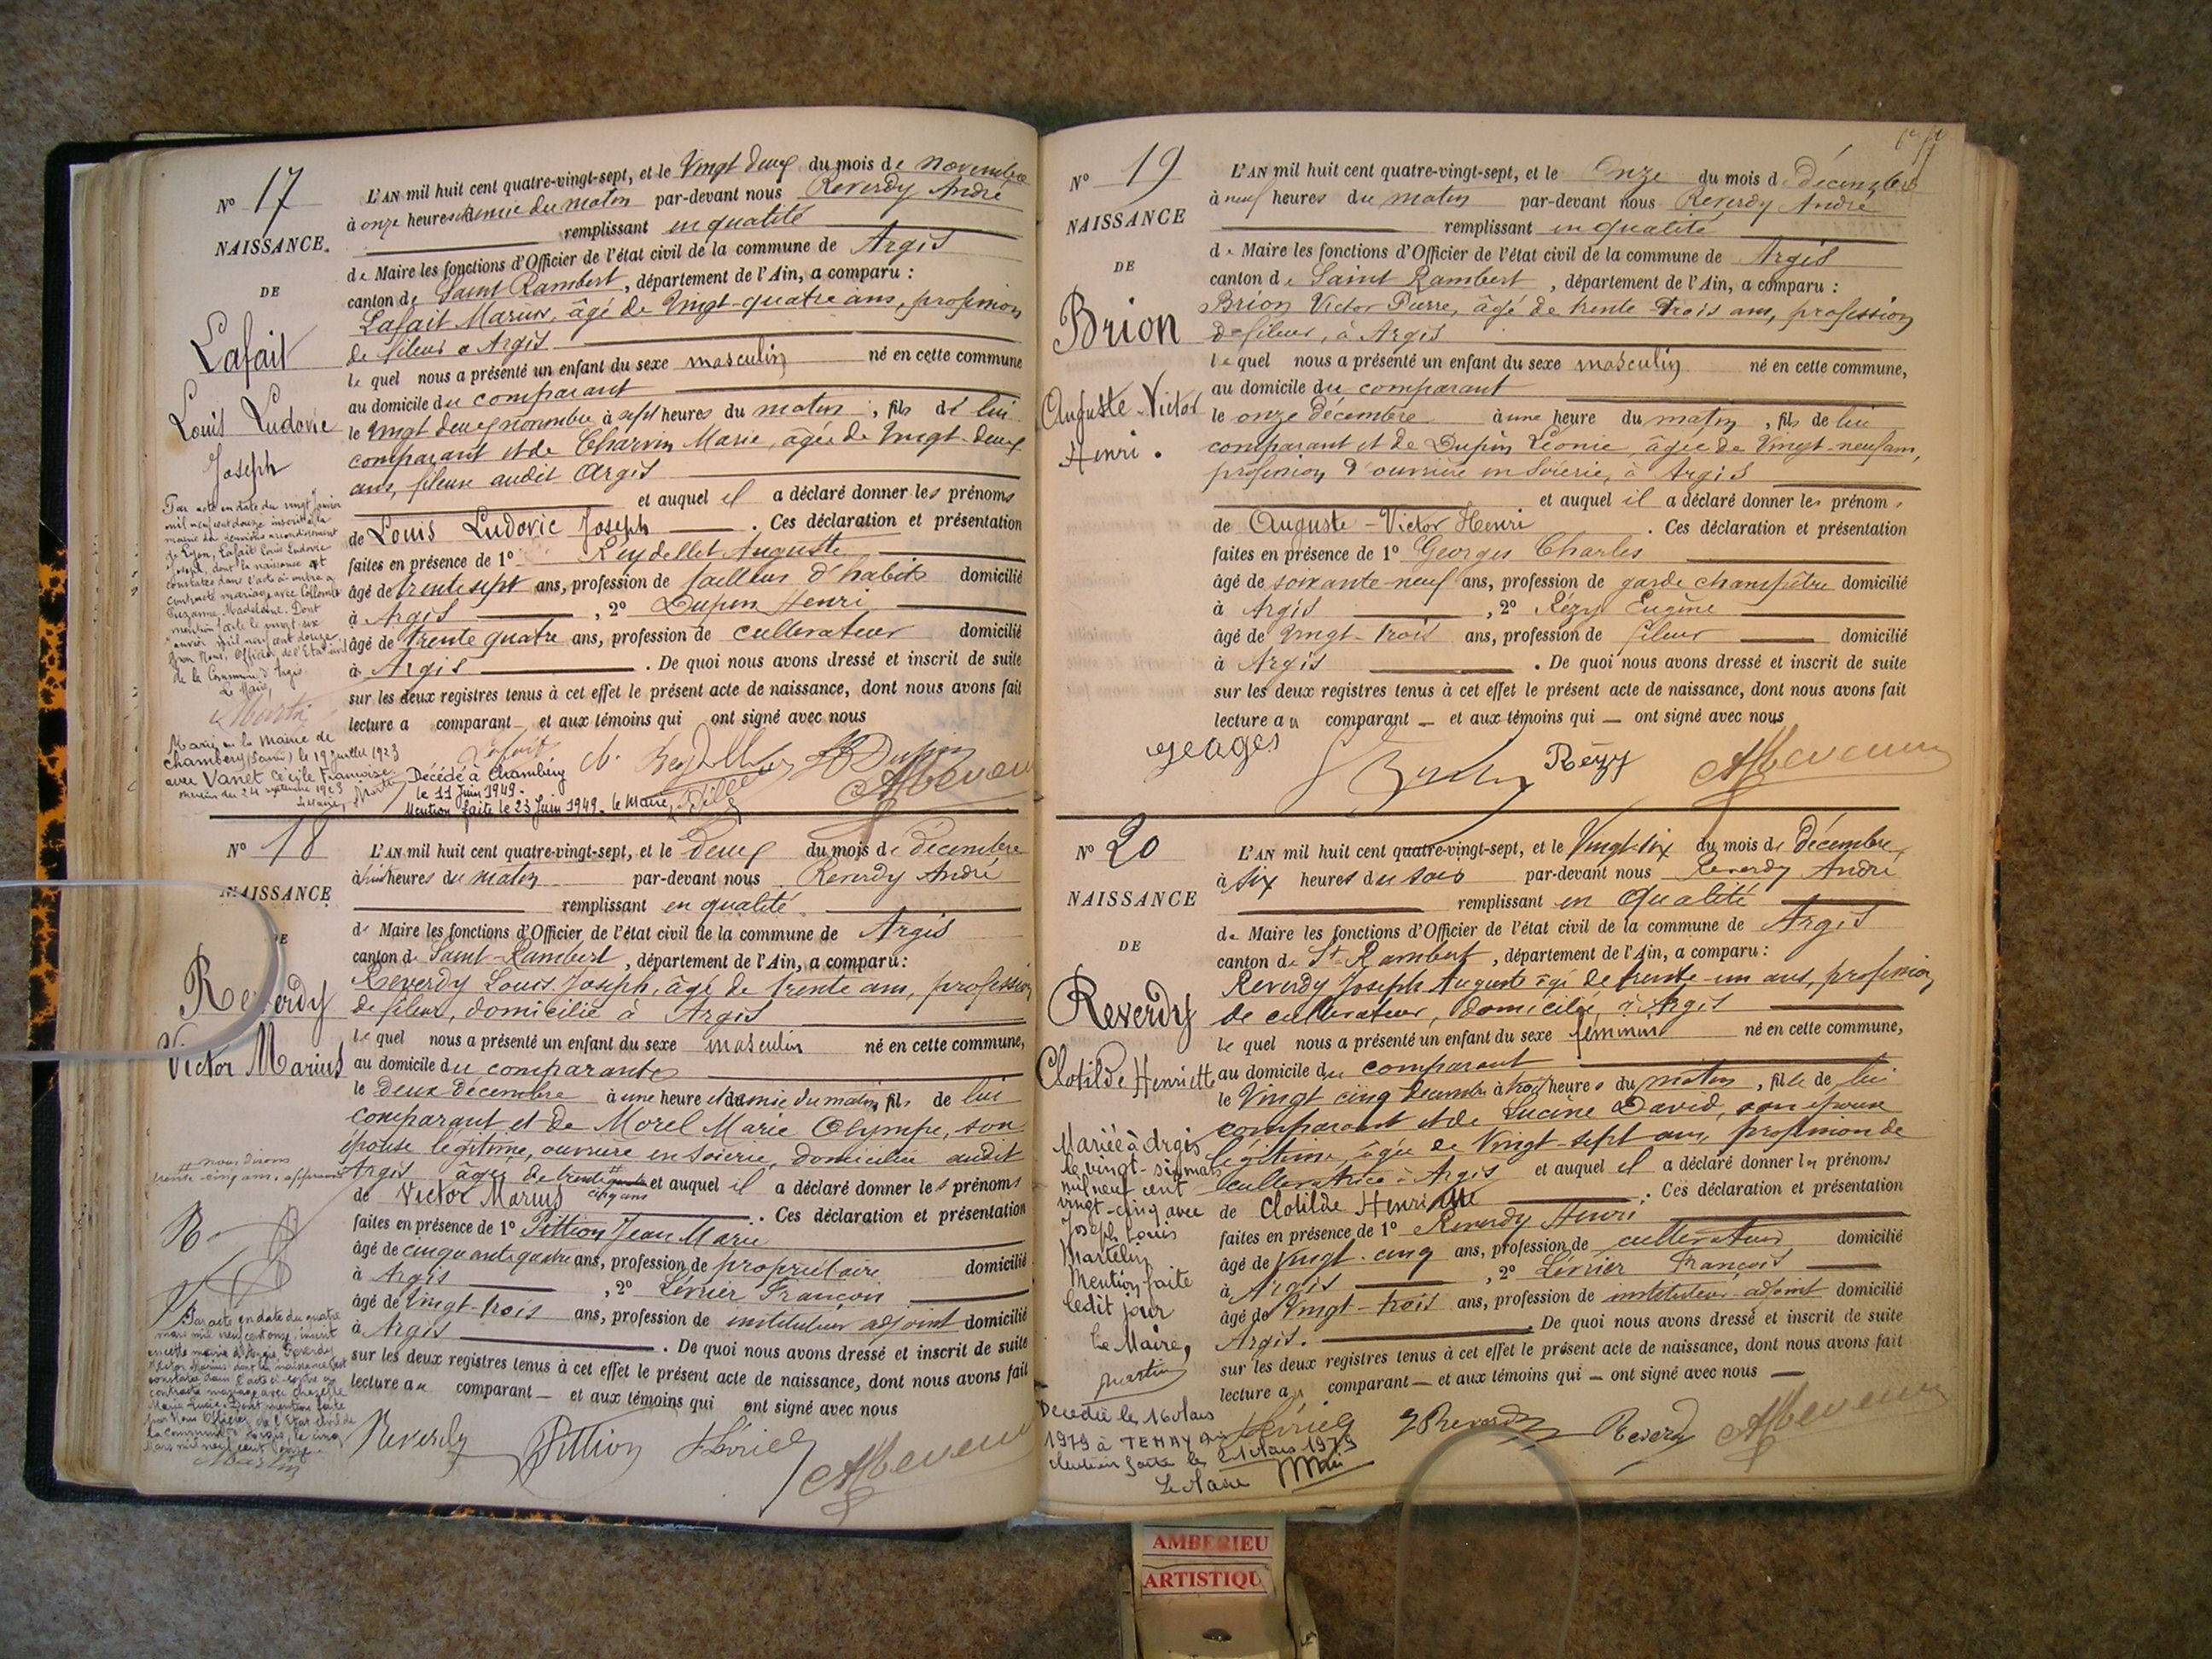 Nº 17
NAISSANCE.
DE
Lafait
Louis Ludovic
Joseph
Par acte en date du vingt Janvier
mil neuf cent douze inscrit à la
mairie du arrondissement
de Lyon, Lafait Louis Ludovic
Joseph, dont la naissance est
constatée dans l'acte ci-contre a
contracté mariage avec Collomb
Suzanne Madeleine. Dont
mention faite le vingt-six
Janvier mil neuf cent douze
par Nous, Officier de l'Etat civil
de la Commune d'Argis.
Le Maire,
Martin
Marié à la mairie de
Chambéry (Savoie) le 19 Juillet 1923
avec Vanet Cécile Françoise
Mention du 24 septembre 1923
Le Maire, Martin
L'AN mil huit cent quatre-vingt-sept, et le Vingt deux du mois de novembre
à onze heures & demie du matin par-devant nous Reverdy André
remplissant en qualité
de Maire les fonctions d'Officier de l'état civil de la commune de Argis
canton de Saint Rambert, département de l'Ain, a comparu :
Lafait Marius, âgé de Vingt-quatre ans, profession
de fileur à Argis
le quel nous a présenté un enfant du sexe masculin né en cette commune
au domicile du comparant
le Vingt deux novembre à sept heures du matin, fils de lui
comparant et de Charvin Marie, âgée de Vingt-deux
ans, fileuse audit Argis
et auquel il a déclaré donner les prénoms
de Louis Ludovic Joseph. Ces déclaration et présentation
faites en présence de 1º Reydellet Auguste
âgé de trente sept ans, profession de tailleur d'habits domicilié
à Argis, 2º Dupin Henri
âgé de trente quatre ans, profession de cultivateur domicilié
à Argis. De quoi nous avons dressé et inscrit de suite
sur les deux registres tenus à cet effet le présent acte de naissance, dont nous avons fait
lecture a comparant et aux témoins qui ont signé avec nous
Lafait A. Reydellet H Dupin
Décédé à Chambéry
le 11 Juin 1949.
Mention faite le 23 Juin 1949. le Maire,
Nº 18
NAISSANCE
DE
Reverdy
Victor Marius
nous disons
trente-cinq ans, approuvé
R
Par acte en date du quatre
mars mil neuf cent onze, inscrit
en cette mairie d'Argis, Reverdy
Victor Marius dont la naissance est
constatée dans l'acte ci-contre a
contracté mariage avec
Marie Lucie. Dont mention faite
par Nous Officier de l'Etat civil de
la commune d'Argis, le cinq
Mars mil neuf cent onze
Martin
L'AN mil huit cent quatre-vingt-sept, et le Deux du mois de décembre
à heures du matin par-devant nous Reverdy André
remplissant en qualité
de Maire les fonctions d'Officier de l'état civil de la commune de Argis
canton de Saint-Rambert, département de l'Ain, a comparu :
Reverdy Louis Joseph, âgé de trente ans, profession
de fileur, domicilié à Argis
le quel nous a présenté un enfant du sexe masculin né en cette commune,
au domicile du comparant
le deux décembre à une heure et demie du matin, fils de lui
comparant et de Morel Marie Olympe, son
épouse légitime, ouvrière en soierie, domiciliée audit
Argis âgée de trente cinq ans et auquel il a déclaré donner les prénoms
de Victor Marius. Ces déclaration et présentation
faites en présence de 1º Pittion Jean Marie
âgé de cinquante quatre ans, profession de propriétaire domicilié
à Argis, 2º Lévrier François
âgé de Vingt-trois ans, profession de instituteur adjoint domicilié
à Argis. De quoi nous avons dressé et inscrit de suite
sur les deux registres tenus à cet effet le présent acte de naissance, dont nous avons fait
lecture au comparant et aux témoins qui ont signé avec nous
Reverdy Pittion Lévrier
Nº 19
NAISSANCE
DE
Brion
Auguste-Victor
Henri.
L'AN mil huit cent quatre-vingt-sept, et le Onze du mois de Décembre
à neuf heures du matin par-devant nous Reverdy André
remplissant en qualité
de Maire les fonctions d'Officier de l'état civil de la commune de Argis
canton de Saint Rambert, département de l'Ain, a comparu :
Brion Victor Pierre, âgé de trente trois ans, profession
de fileur, à Argis
le quel nous a présenté un enfant du sexe masculin né en cette commune,
au domicile du comparant
le onze décembre à une heure du matin, fils de lui
comparant et de Dupin Léonie, âgée de Vingt-neuf ans,
profession d'ouvrière en soierie, à Argis
et auquel il a déclaré donner les prénoms
de Auguste-Victor Henri. Ces déclaration et présentation
faites en présence de 1º Georges Charles
âgé de soixante-neuf ans, profession de garde champêtre domicilié
à Argis, 2º Rézy Eugène
âgé de Vingt-trois ans, profession de fileur domicilié
à Argis. De quoi nous avons dressé et inscrit de suite
sur les deux registres tenus à cet effet le présent acte de naissance, dont nous avons fait
lecture au comparant et aux témoins qui ont signé avec nous
geages Rézy
Nº 20
NAISSANCE
DE
Reverdy
Clotilde Henriette
Mariée à Argis
le vingt-six mars
mil neuf cent
vingt-cinq avec
Joseph Louis
Martelin
Mention faite
ledit jour
Le Maire,
Martin
Décédée le 16 Mars
1979 à TENAY Ain
Mention faite le 21 Mars 1979
Le Maire
L'AN mil huit cent quatre-vingt-sept, et le Vingt-six du mois de Décembre,
à six heures du soir par-devant nous Reverdy André
remplissant en qualité
de Maire les fonctions d'Officier de l'état civil de la commune de Argis
canton de St-Rambert, département de l'Ain, a comparu :
Reverdy Joseph Auguste âgé de trente-un ans, profession
de cultivateur, domicilié, à Argis
le quel nous a présenté un enfant du sexe féminin né en cette commune,
au domicile du comparant
le Vingt cinq Décembre à trois heures du matin, fille de lui
comparant et de Lucine David, son épouse
légitime, âgée de Vingt-sept ans, profession de
cultivatrice à Argis et auquel il a déclaré donner les prénoms
de Clotilde Henriette. Ces déclaration et présentation
faites en présence de 1º Reverdy Henri
âgé de Vingt-cinq ans, profession de cultivateur domicilié
à Argis, 2º Lévrier François
âgé de Vingt-trois ans, profession de instituteur-adjoint domicilié
Argis. De quoi nous avons dressé et inscrit de suite
sur les deux registres tenus à cet effet le présent acte de naissance, dont nous avons fait
lecture au comparant et aux témoins qui ont signé avec nous
Lévrier Reverdy Reverdy
AMBERIEU
ARTISTIQU